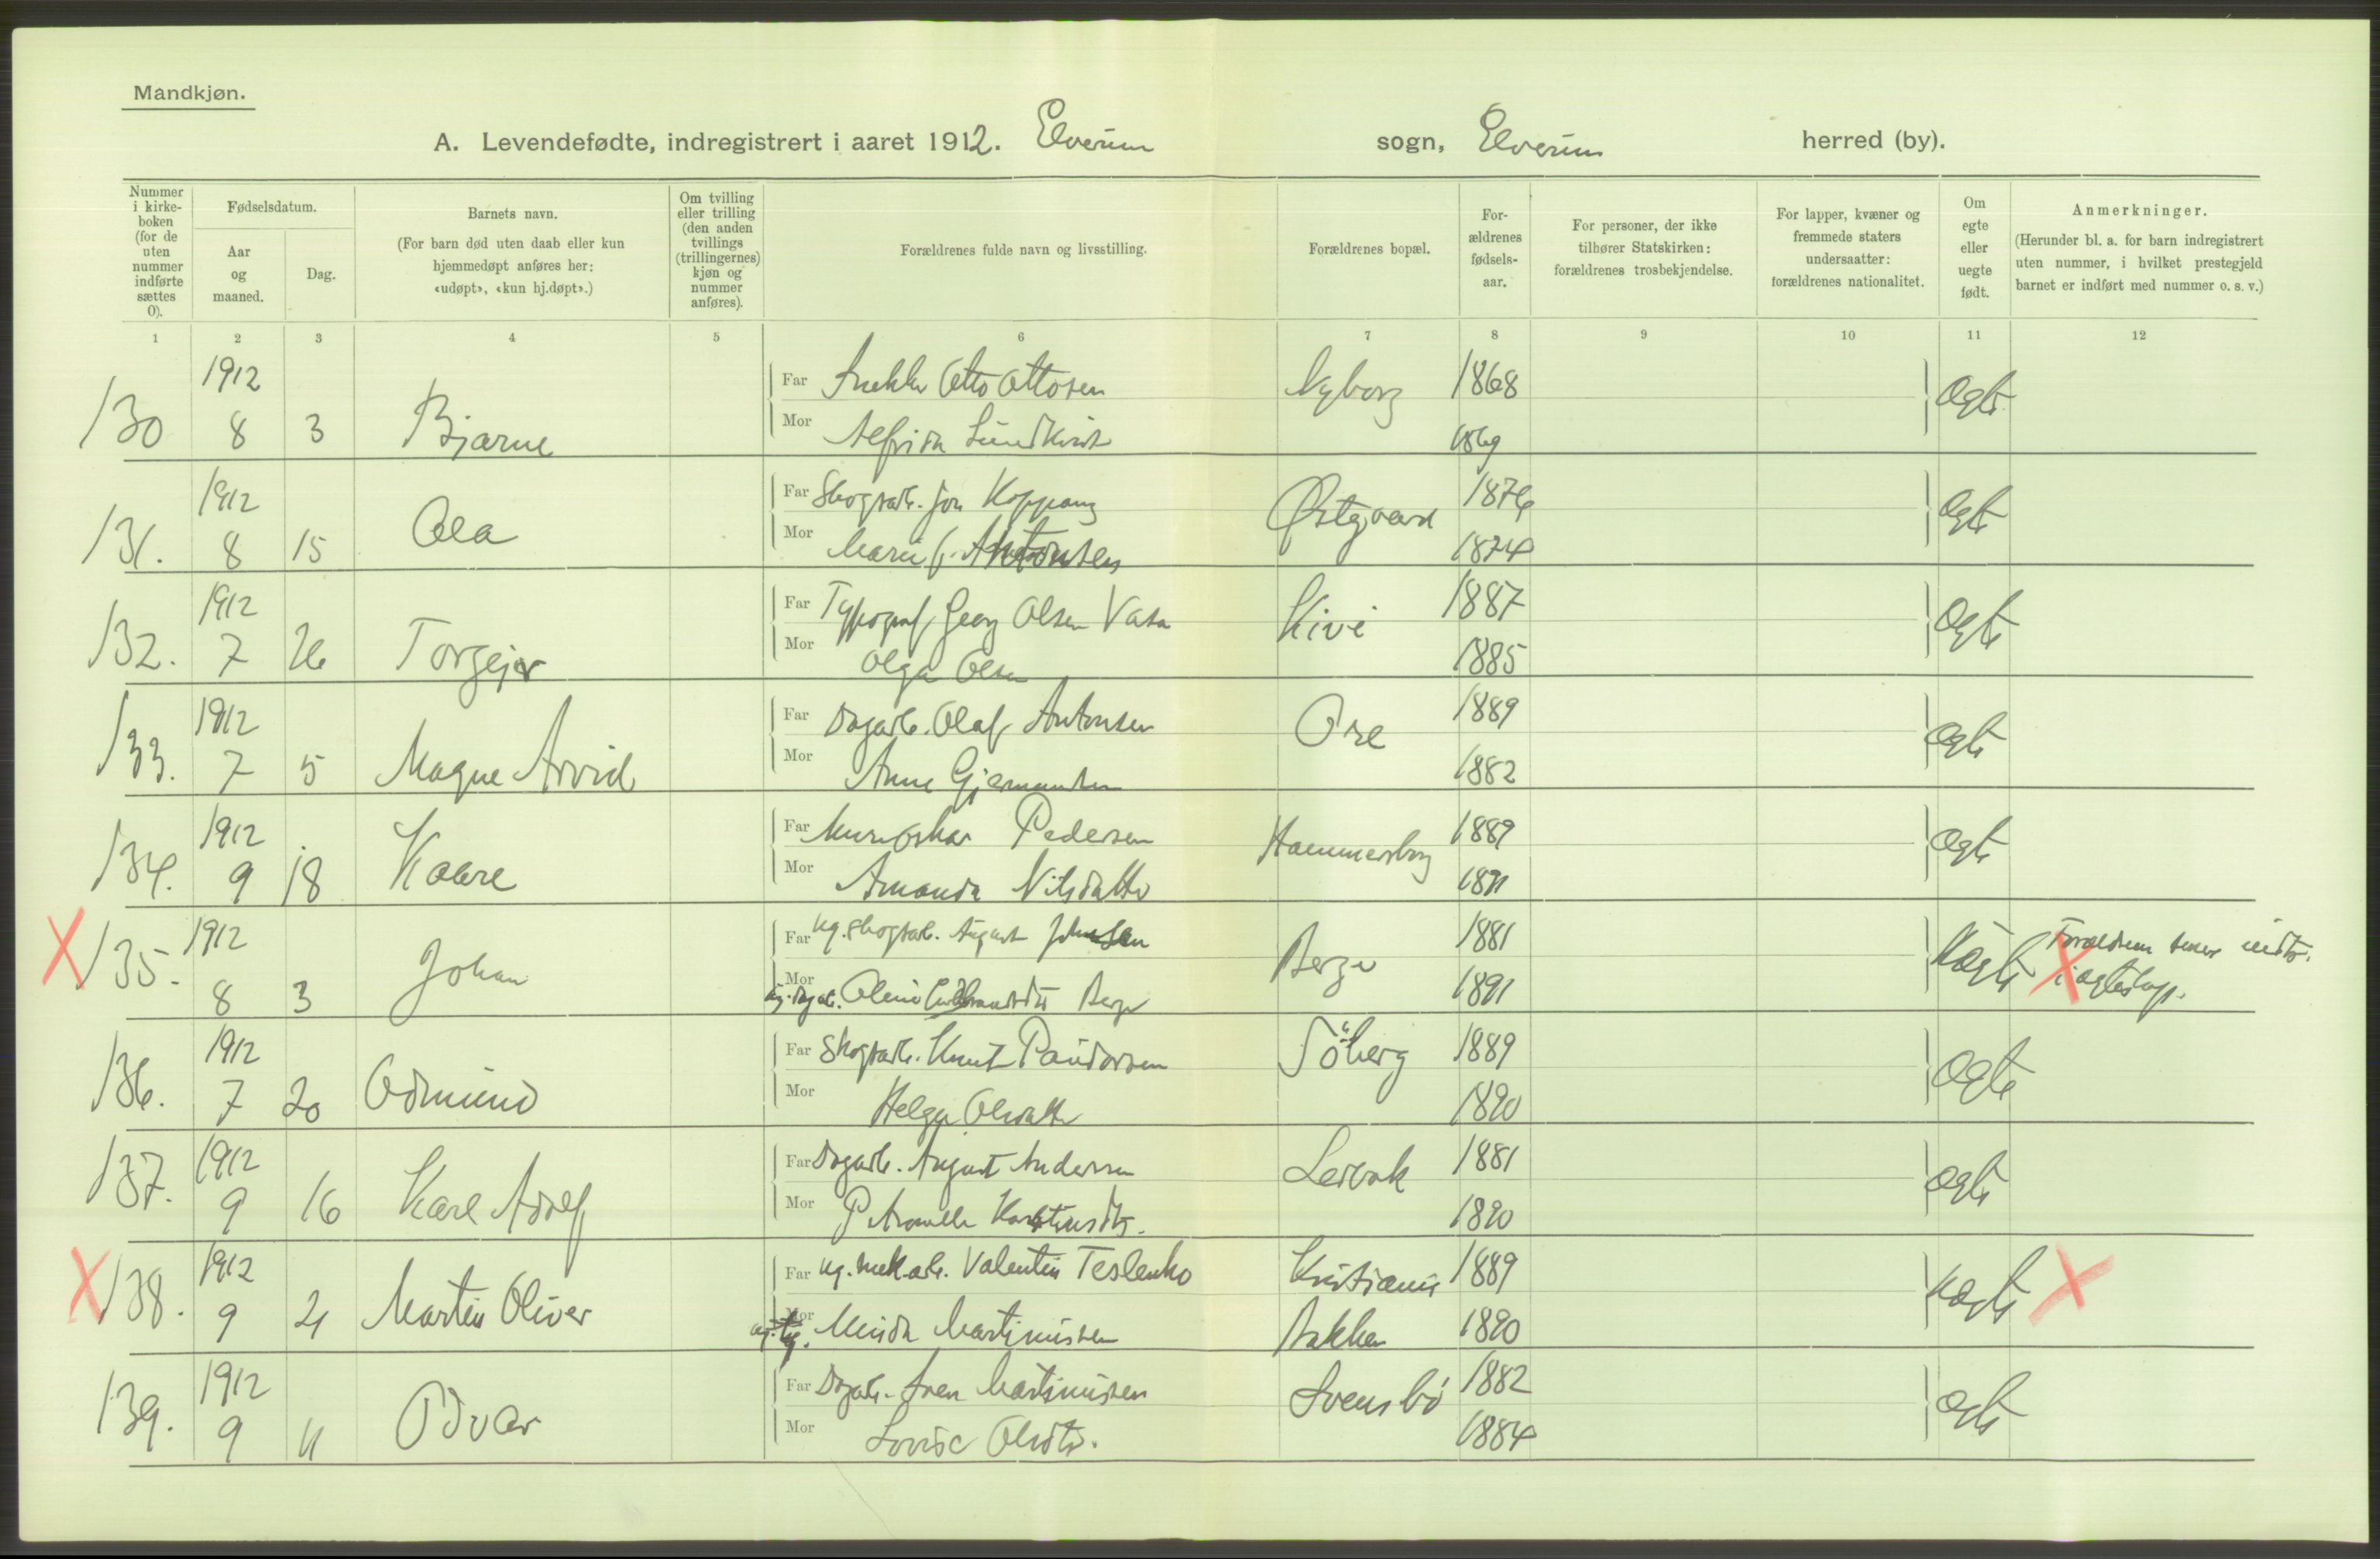 Mandkjøn.
A. Levendefødte, indregistrert i aaret 1912. Elverum sogn, Elverum herred (by).
Nummer i kirke-boken (for de uten nummer indførte sættes 0).
Fødselsdatum.
Aar og maaned.
Dag.
Barnets navn.
(For barn død uten daab eller kun hjemmedøpt anføres her: «udøpt», «kun hj.døpt».)
Om tvilling eller trilling (den anden tvillings (trillingernes) kjøn og nummer anføres).
Forældrenes fulde navn og livsstilling.
Forældrenes bopæl.
For-ældrenes fødsels-aar.
For personer, der ikke tilhører Statskirken: forældrenes trosbekjendelse.
For lapper, kvæner og fremmede staters undersaatter: forældrenes nationalitet.
Om egte eller uegte født.
Anmerkninger.
(Herunder bl. a. for barn indregistrert uten nummer, i hvilket prestegjeld barnet er indført med nummer o. s. v.)
1 2 3 4 5 6 7 8 9 10 11 12
130 1912 8 3 Bjarne Far Otto Ottosen Nyborg 1868 ægte
Mor Alfrida Lundkvist 1869
131. 1912 8 15 Ola Far Skogsarb. Jon Koppang Østgaard 1876 ægte
Mor Marie Antonsen 1874
132. 1912 7 26 Torgejr Far Typograf Georg Olsen Vasa Kivi 1887 ægte
Mor Olga Olsen 1885
133. 1912 7 5 Magne Arvid Far Dagarb. Olaf Antonsen 1889 ægte
Mor Anne 1882
134. 1912 9 18 Kaare Far Murer Oskar Pedersen Hammersberg 1889 ægte
Mor Amanda Nilsdatter 1891
X 135. 1912 8 3 Johan Far Ug. Skogsarb. August Johnsen Berger 1881 Uægte X Forældrene senere indtr. i ægteskap.
Mor Ug. Dagarb. Oline Gulbrandsdtr Berger 1891
136. 1912 7 20 Odmund Far Skogsarb. Knut Paudersen Söberg 1889 ægte
Mor Helga Olsdatter 1890
137. 1912 9 16 Karl Adolf Far Dagarb. August Andersen Lervak 1881 ægte
Mor Petronelle Karstensdtr. 1890
X 138. 1912 9 21 Martin Oliver Far Ug. mek.arb. Valentin Teslenko Kristiania 1889 Uægte X
Mor ug. tj. Minda Martinussen Bakken 1890
139. 1912 9 11 Odvar Far Dagarb. Martinussen Svensbö 1882 ægte
Mor Lovise Olsdtr. 1884